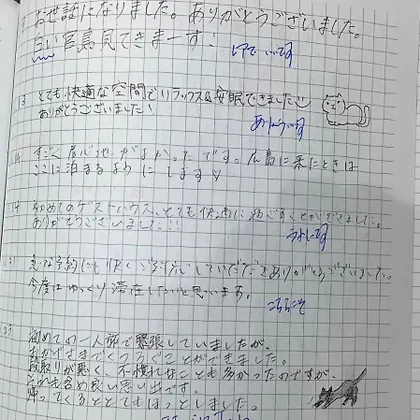 お世話になりました。ありがとうございました。
白い宮島見てきまーす！
13 とても快適な空間でリラックス&安眠できました
ありがとうございました！
すごく居心地がよかったです。広島に来たときは
ここに泊まるようにします
14 初めてのゲストハウス、とても快適に過ごすことができました。
ありがとうございました!!!
うれしいです
急な予約にも快くご対応していただきありがとうございました。
今度はゆっくり滞在したいと思います。
こちらこそ
初めての一人旅で緊張していましたが、
くつろぐことができました。
段取りが悪く、不慣れなことも多かったのですが、
それも含め良い思い出です。
帰ってくるととてもほっとしました。